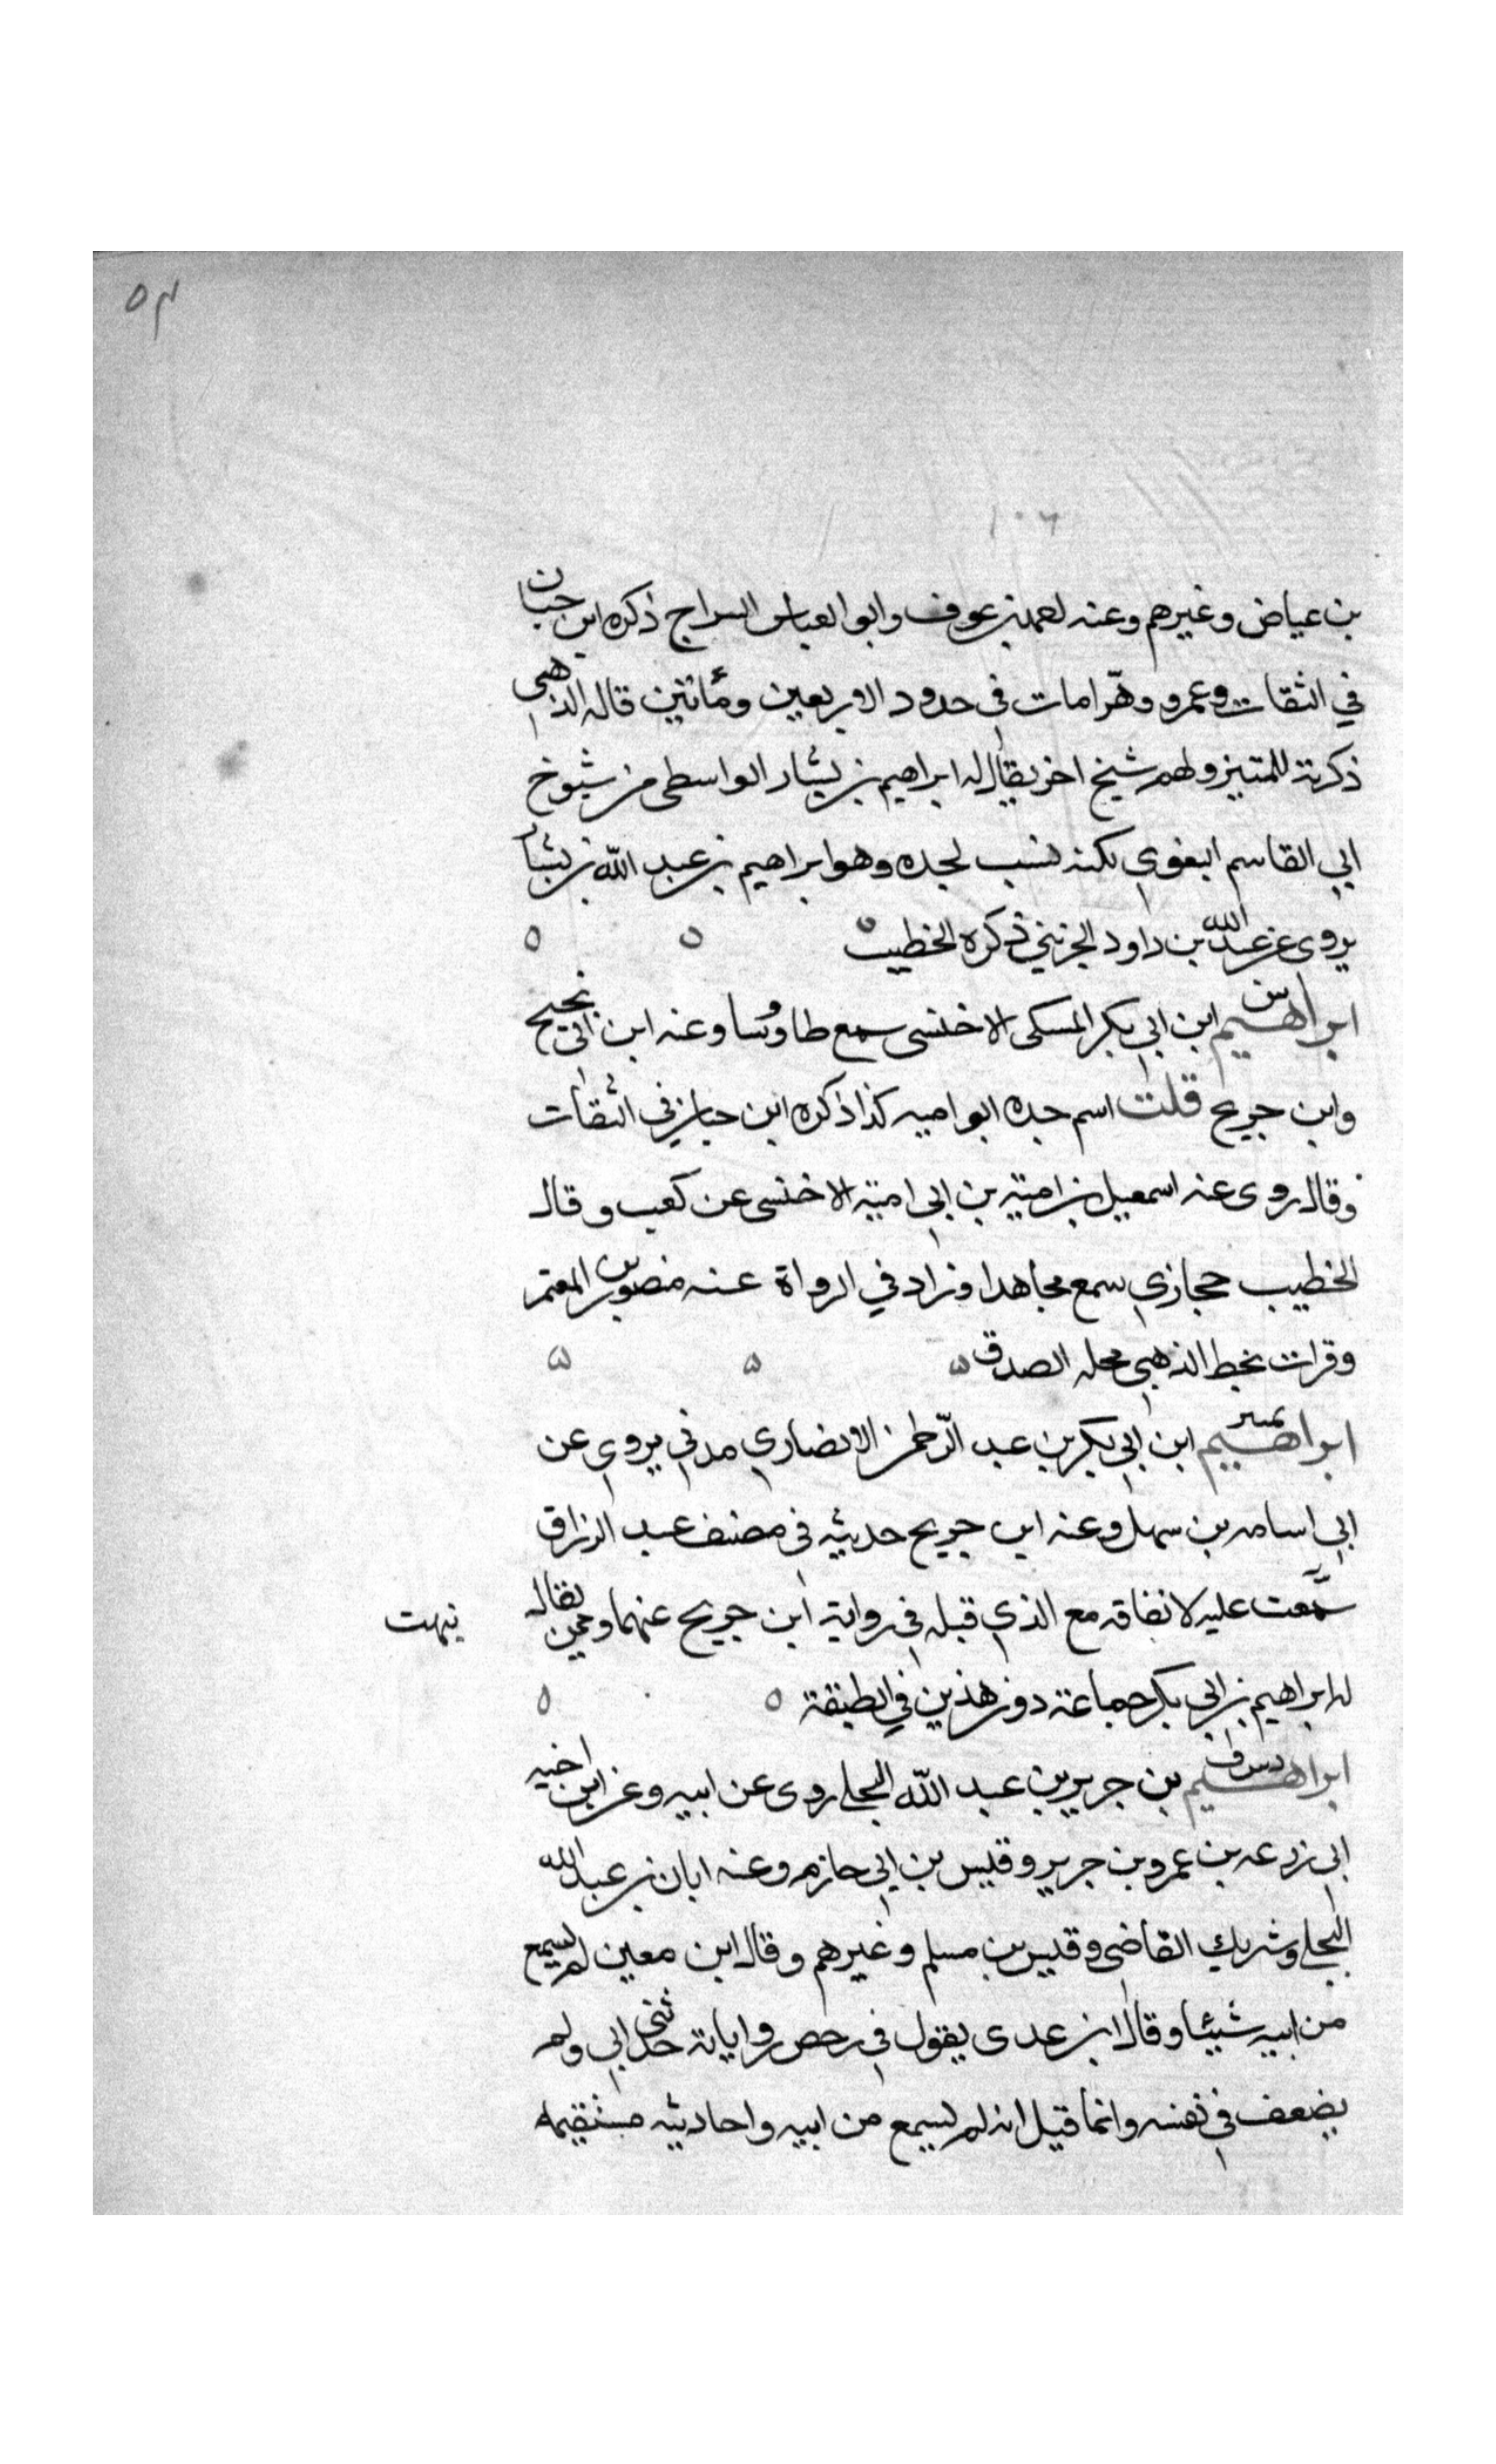 ٥٣
١٠٦
بن عياض وغيرهم وعنه احمد بن عوف وابو العباس السراج ذكره ابن حبان
في الثقات وعمرو وهّرا مات في حدود الاربعين ومأتين قاله الذهبى
ذكرته للمتييز ولهم شيخ اخر يقال له ابراهيم بن بشار الواسطى من شيوخ
ابي القاسم البغوي لكنه نسب لجده وهو ابراهيم بن عبد الله بن بشار
يروى عن عبد الله بن داود الخريبي ذكره الخطيب ٥ ٥ ٥
ابراهيم س ابن ابي بكر المكى الاخنسى سمع طاوسا وعنه ابن ابي نجيح
وابن جريج قلت اسم جده ابو اميه كذا ذكره ابن حبان في الثقات
وقال روى عنه اسمعيل بن امية بن ابي امية الاخنسى عن كعب وقال
الخطيب حجازي سمع مجاهدا وزاد في الرواة عنه منصور بن المعتمر
وقرات بخط الذهبي محله الصدق ٥ ٥ ٥
ابراهيم تمييز ابن ابي بكر بن عبد الرّحمن الانصاري مدني يروي عن
ابي اسامه بن سهل وعنه ابن جريج حديثه فى مصنف عبد الرزاق
سمّعت عليه لاتفاقه مع الذي قبله في رواية ابن جريج عنهما وممن يقال
نبهت
له ابراهيم بن ابي بكر جماعة دون هذين في الطبقة ٥ ٥
ابراهيم د س ق بن جرير بن عبد الله البجلي روى عن ابيه وعن ابن اخيه
ابي زرعه بن عمرو بن جرير وقيس بن ابي حازم وعنه ابان بن عبد الله
البجلي وشريك القاضى وقيس بن مسلم وغيرهم وقال ابن معين لم يسمع
من ابيه شيئا وقال ابن عدى يقول في بعض رواياته حدثنى ابي ولم
يضعف في نفسه وانما قيل انه لم يسمع من ابيه واحاديثه مستقيمه